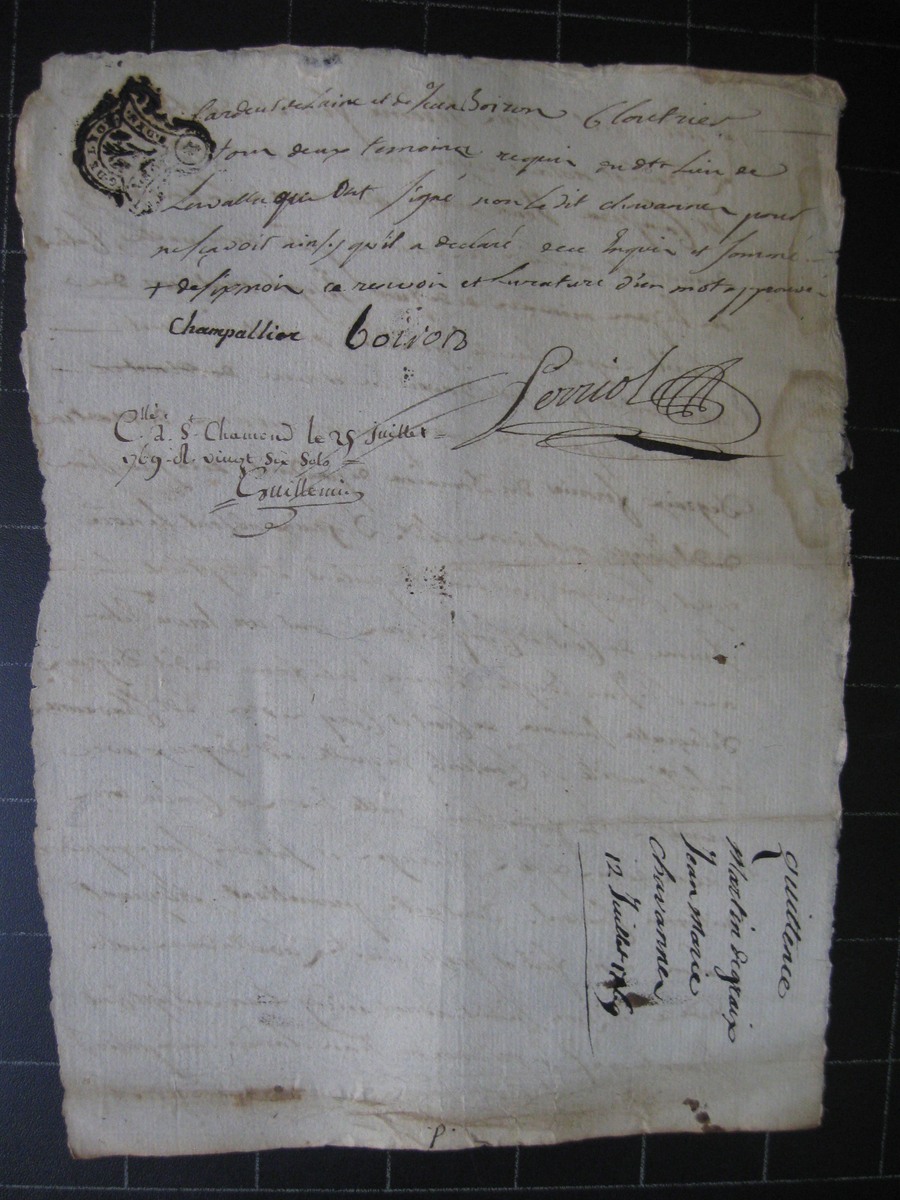 Cardeur de Laine et de Jean Boiron Cloutrier
tous deux temoins requis du dt Lieu de
Lavalla que ont signé non Le dit chavannes pour
ne sçavoir ainsy qu'il a declaré de ce Enquis et sommé
+ de six mois ce renvoi et Lurature d'un mot approuvé
Champallier boiron
Perriol
Cllé à St Chamond le 25 Juillet
1769 R. vingt six sols
Guillemin
quittence
Martin degraix
Jean Marie
chavannes
12 Juillet 1769
P.